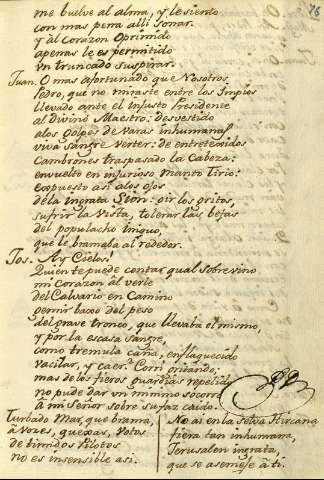 76
me buelve al alma, y le siento
con mas pena alli sonar.
y àl corazon Oprimido
apenas le es permitido
un truncado suspirar.
Juan. O mas afortunado que Nosotros
Pedro, que no miraste entre los Impios
llevado ante el injusto Presidente
al Divino Maestro: desvestido
a los golpes de Varas inhumanas
viva sangre Verter: de entretexidos
Cambrones traspasado la Cabeza:
envuelto en injurioso Manto Tirio:
expuesto asi a los ojos
de la ingrata Sion: oir los gritos,
sufrir la Vista, tolerar las befas
del populacho iniquo,
que le bramaba al rededor.
Jos. Ay Cielos!
Quien te puede contar qual sobrevino
mi Corazon àl verle
del Calvario en Camino
gemir baxo del peso
del grave tronco, que llevaba èl mismo,
y por la escasa sangre,
como tremula caña, enflaquecido
vacilar, y caer. Corri gritando;
mas de los fieros guardias repelido
no pude dar un minimo socorro
à mi Señor sobre su faz caido.
Turbado Mar, que brama,
à vozes, quexas, Votos
de timidos Pilotos
no es insensible asi.
No ai en la selva Hircana
fiera tan inhumana,
Jerusalen ingrata,
que se asemeje à ti.